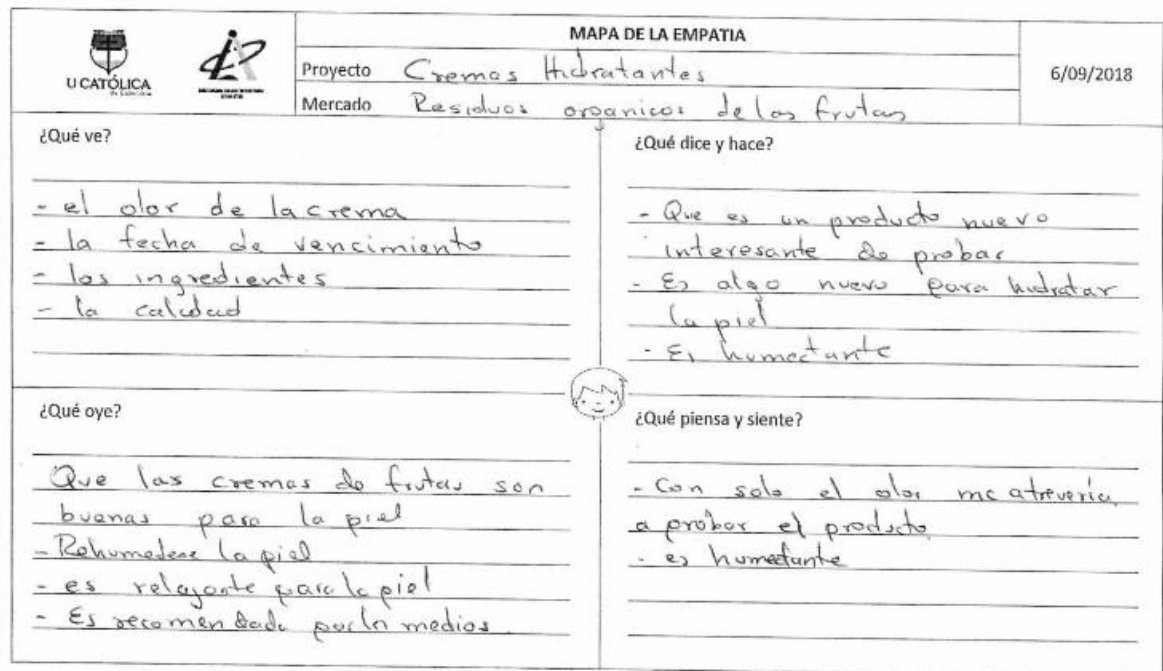 MAPA DE LA EMPATIA
Proyecto Cremas Hidratantes
Mercado Residuos organicos de las frutas
6/09/2018
U CATÓLICA
¿Qué ve?
- el olor de la crema
- la fecha de vencimiento
- los ingredientes
- la calidad
¿Qué dice y hace?
- Que es un producto nuevo
interesante de probar
- Es algo nuevo para hidratar
la piel
- Es humectante
¿Qué oye?
Que las cremas de frutas son
buenas para la piel
- la piel
- es relajante para la piel
- Es recomendada por medios
¿Qué piensa y siente?
- Con solo el olor me atrevería
a probar el producto
- es humectante